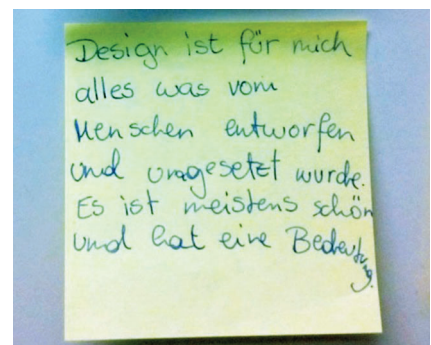 Design ist für mich
alles was vom
Menschen entworfen
und umgesetzt wurde.
Es ist meistens schön
und hat eine Bedeutung.